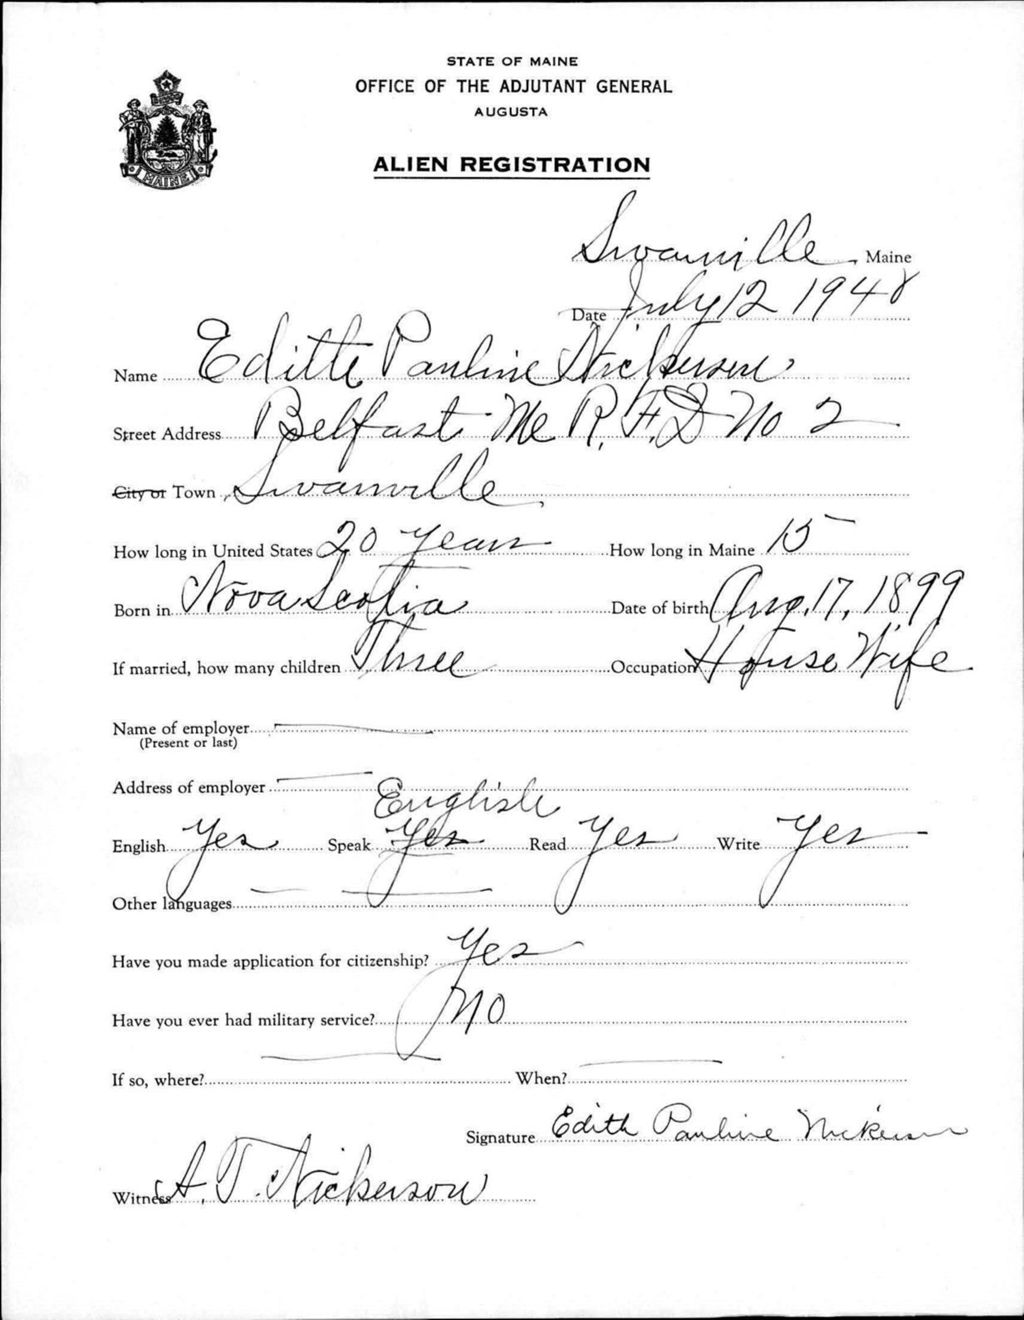 STATE OF MAINE
OFFICE OF THE ADJUTANT GENERAL
AUGUSTA
ALIEN REGISTRATION
MAINE
Swanville, Maine
Date July 12 1940
Name Edith Pauline Nickerson
Street Address Belfast Me R.F.D No 2
City or Town Swanville
How long in United States 20 years How long in Maine 15
Born in Nova Scotia Date of birth Aug. 17, 1899
If married, how many children Three Occupation House Wife
Name of employer
(Present or last)
Address of employer
English
English Yes Speak Yes Read Yes Write Yes
Other languages
Have you made application for citizenship? Yes
Have you ever had military service? No
If so, where? When?
Signature Edith Pauline Nickerson
Witness A. T. Nickerson